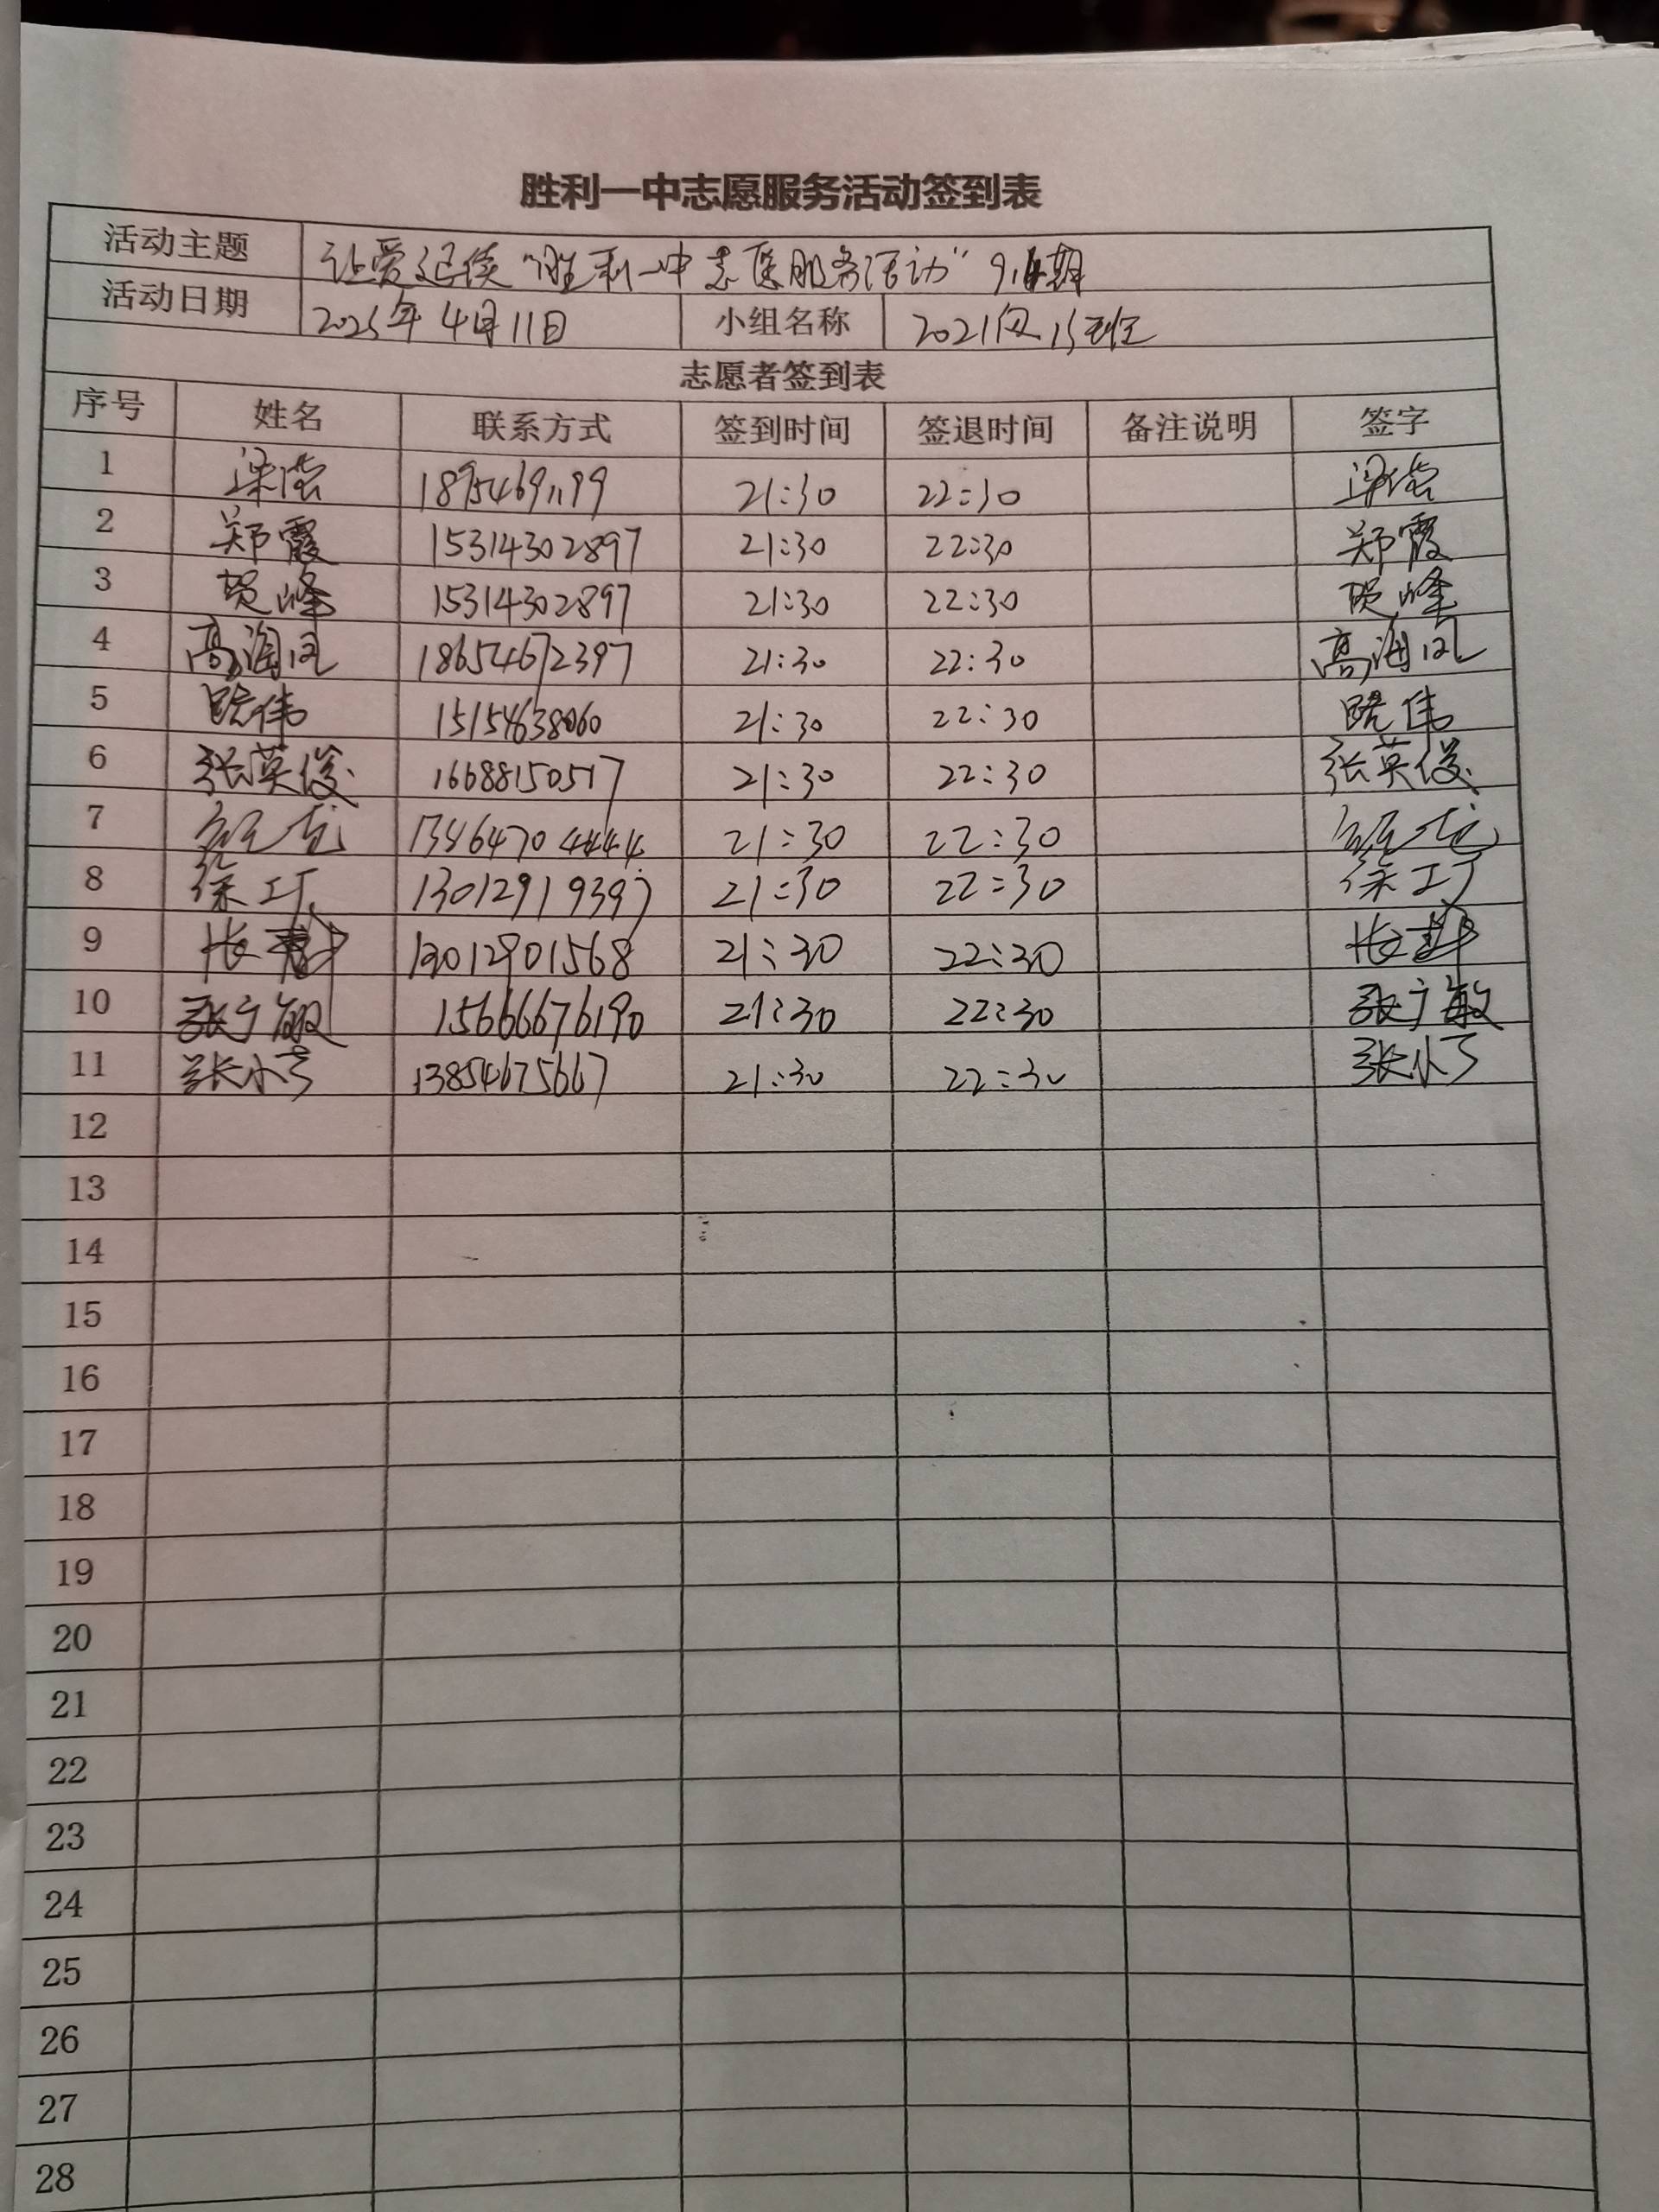 胜利一中志愿服务活动签到表
活动主题 让爱延续"胜利一中志愿服务活动"
活动日期 2025年4月11日 小组名称 2021级15班
志愿者签到表
序号 姓名 联系方式 签到时间 签退时间 备注说明 签字
1 21:30 22:30
2 郑霞 15314302897 21:30 22:30 郑霞
3 贺峰 15314302897 21:30 22:30 贺峰
4 高海风 18654672397 21:30 22:30 高海风
5 15154638060 21:30 22:30
6 张英俊 16688150517 21:30 22:30 张英俊
7 13464704444 21:30 22:30
8 徐 13012919397 21:30 22:30 徐
9 13012901568 21:30 22:30
10 张广敏 15666676190 21:30 22:30 张广敏
11 13854675667 21:30 22:30
12
13
14
15
16
17
18
19
20
21
22
23
24
25
26
27
28